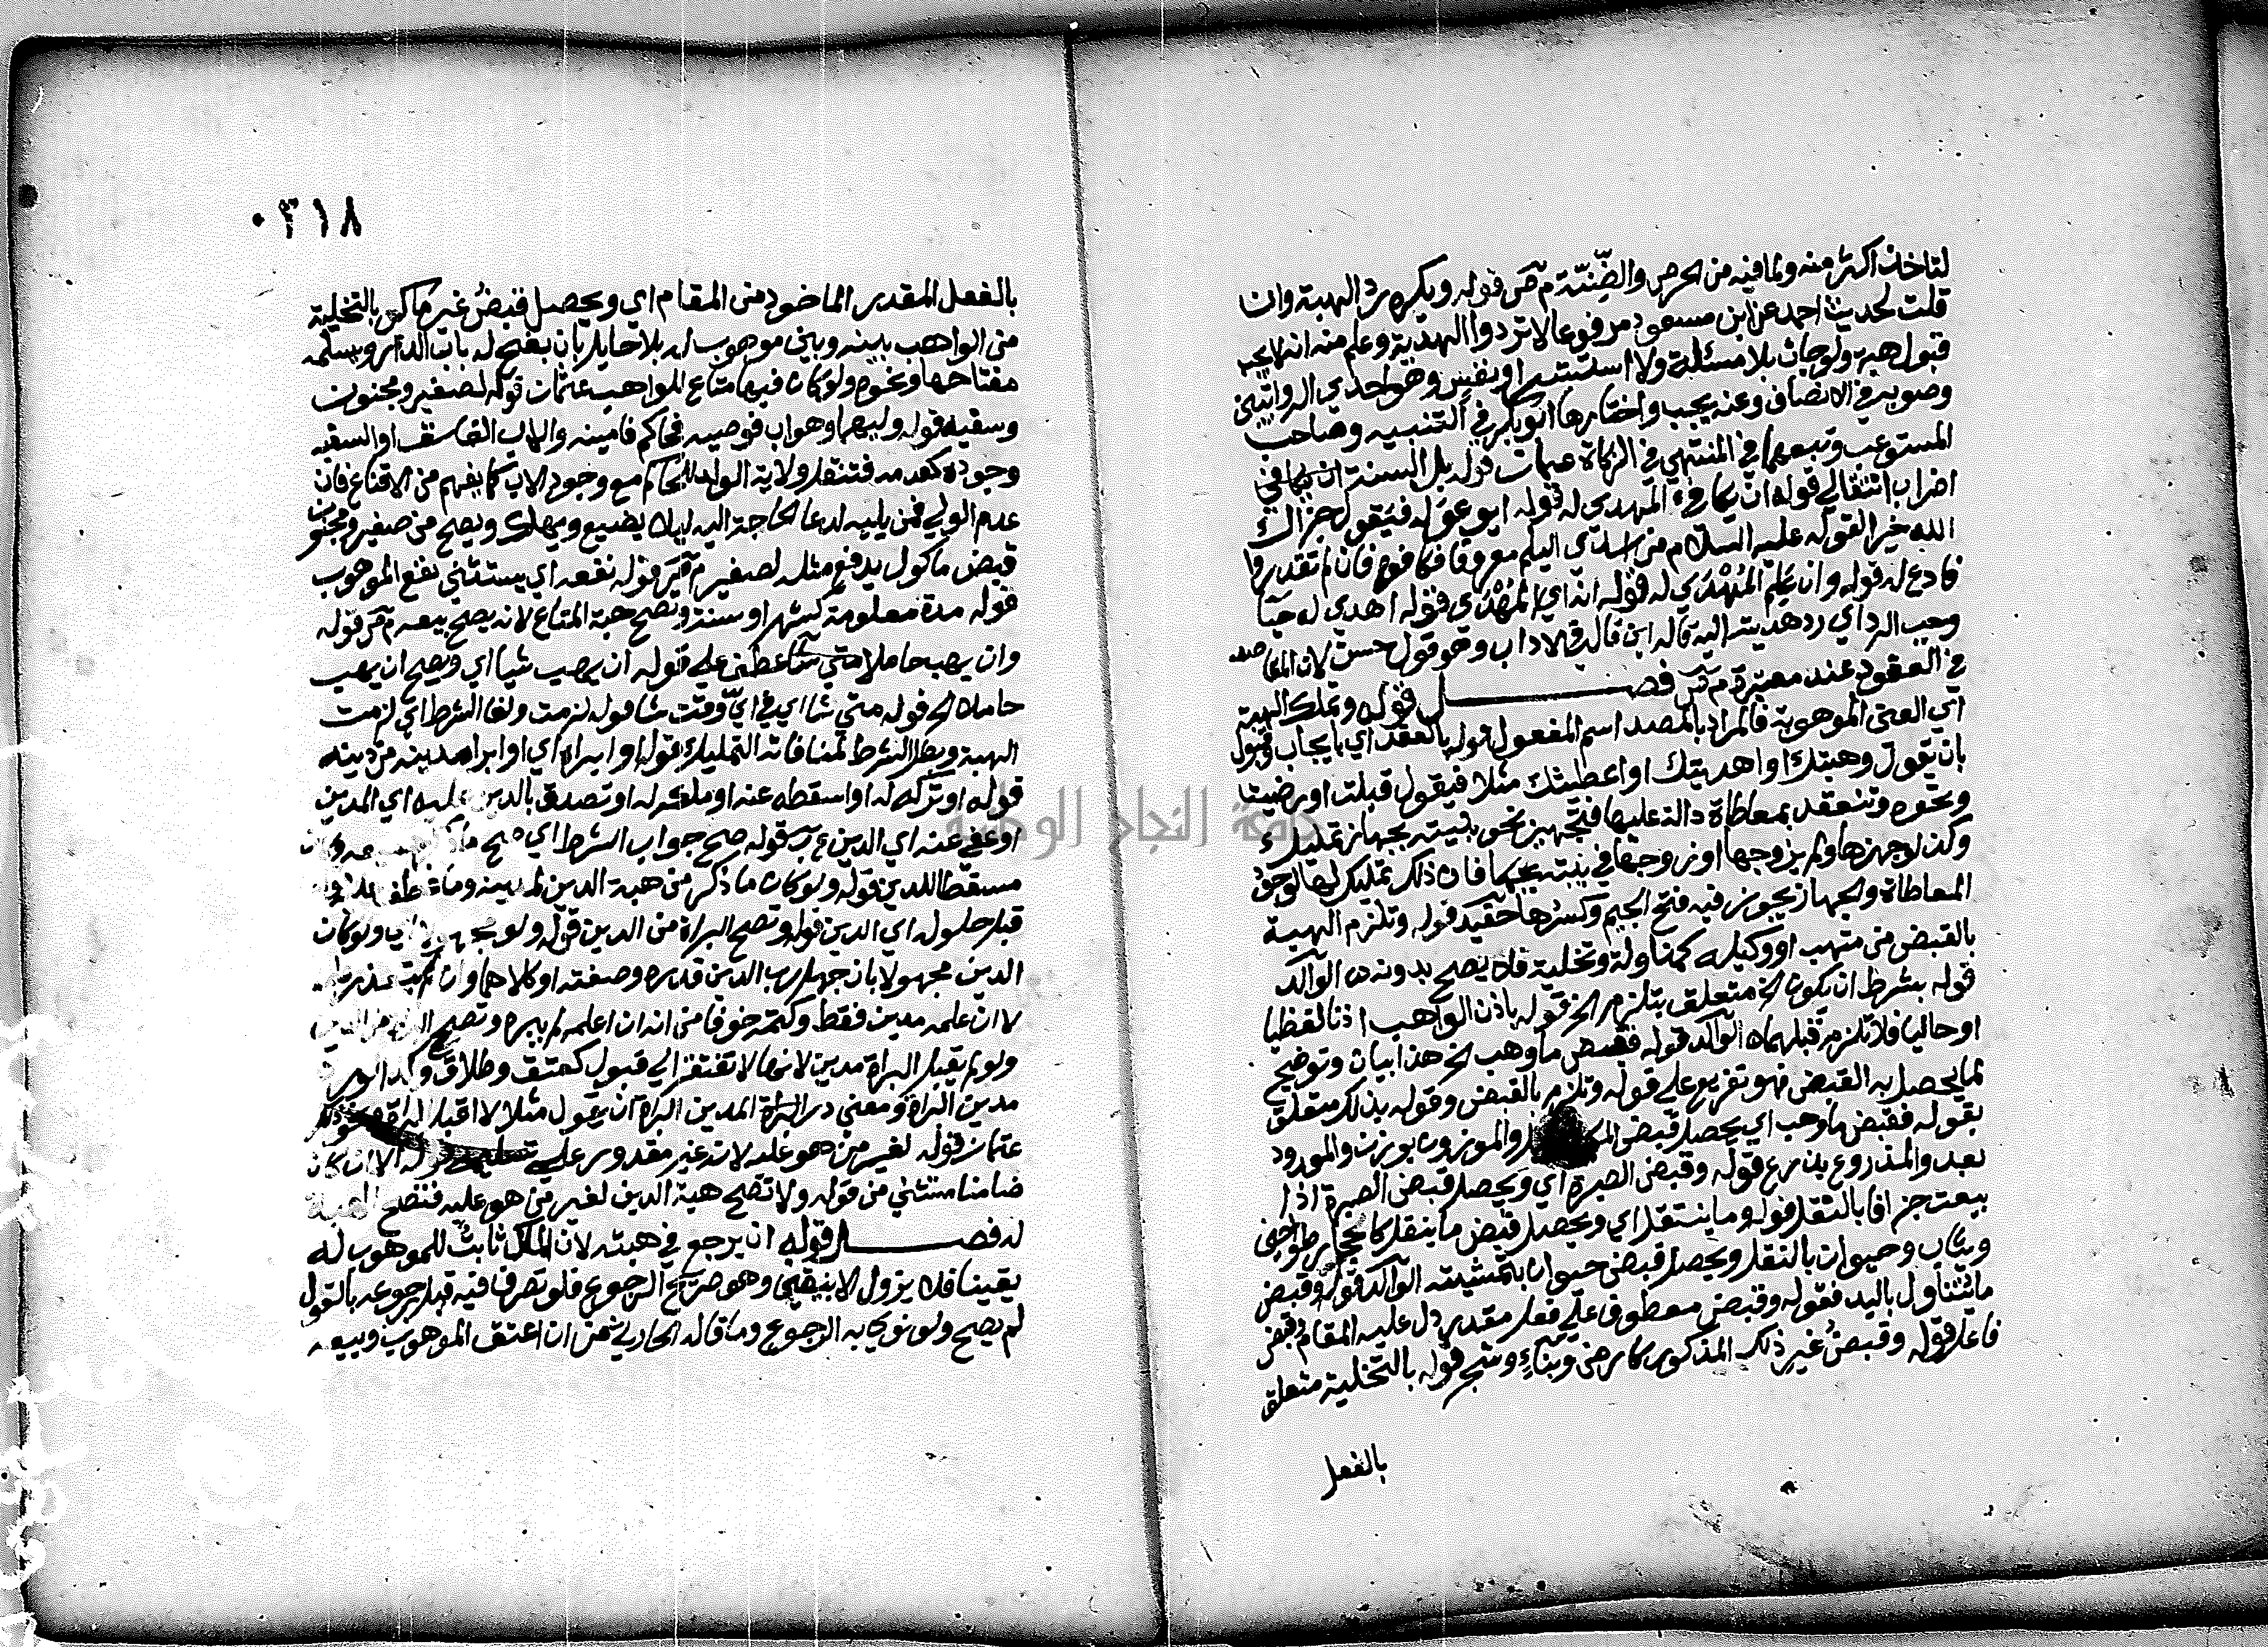 لتاخذ اكثر منه ولما فيه من الحرص والضِّنّة م ص قوله ويكره رد الهبة وان
قلت لحديث احمد عن ابن مسعود مرفوعا لا تردوا الهدية وعلم منه انه لا يجب
قبول هبة ولو جات بلا مسئلة ولا استشراف نفس وهو احدي الروايتين
وصوبه في الانصاف وعنه يجب واختارها ابو بكر في التنبيه وصاحب
المستوعب وتبعهما في المنتهي في الزكاة عثمان قوله بل السنة ان يكافي
اضراب انتقالي قوله ان يكافي المهدى له قوله او يدعو له فيقول جزاك
الله خيرا لقوله عليه السلام من اسدى اليكم معروفا فكافوه فان لم تقدروا
فادعو له قوله وان علم المُهْدَى له قوله انه اي المُهْدِى قوله اهدي له حيآ
وجب الرد اي رد هديته اليه قاله ابن في الاداب وهو قول حسن لان المقاصد
في العقود عندنا معتبرة م ص فصل قوله وتملك الهبة
اي العين الموهوبة فالمراد بالمصدر اسم المفعول قوله بالعقد اي بايجاب وقبول
بان يقول وهبتك او اهديتك او اعطيتك مثلا فيقول قبلت او رضيت
ونحوه وتنعقد بمعاطاة دالة عليها فتجهيز نحو بنيته بجهاز تمليك
وكذا لو جهزها ولم يزوجها او زوجها في بيته فان ذلك تمليك لها لوجود
المعاطاة والجهاز يجوز فيه فتح الجيم وكسرها حفيد قوله وتلزم الهبة
بالقبض من متهب او وكيله كمناولة وتخلية فلا يصح بدونه من الوالد
قوله بشرط ان يكون الخ متعلق بتلزم الخ قوله باذن الواهب اذنا لفظيا
او حاليا فلا تلزم قبلهما الوالد قوله فقبض ما وهب الخ هذا بيان وتوضيح
لما يحصل به القبض فهو تفريع علي قوله وتلزم بالقبض وقوله بذلك متعلق
بقوله فقبض ما وهب اي يحصل قبض والموزون بوزن والمعدود
بعد والمذروع بذرع قوله وقبض الصبرة اي ويحصل قبض الصبرة اذا
بيعت جزافا بالنقل قوله وما ينتقل اي ويحصل قبض ما ينقل كاحجار طواحين
وثياب وحيوان بالنقل ويحصل قبض حيوان بتمشيته الوالد قوله وقبض
ما يتناول باليد فقوله وقبض معطوف علي فعل مقدر دل عليه المقام وقبض
فاعل قوله وقبضُ غير ذلك المذكور كارض وبناء وشجر قوله بالتخلية متعلق
بالفعل
٠٣١٨
بالفعل المقدر الماخوذ من المقام اي ويحصل قبضُ غير ما ذكر بالتخلية
من الواهب بينه وبين موهوب له بلا حايل بان يفتح له باب الدار ويسلمه
مفتاحها ونحوه ولو كان فيها متاع للواهب عثمان قوله لصغير ومجنون
وسفيه قوله وليهما وهو اب فوصيه فحاكم فامينه والاب الفاسق او السفيه
وجوده كعدمه فتنتقل ولاية الولد للحاكم مع وجود الاب كما يفهم من الاقناع فان
عدم الولي فمن يليه لدعا الحاجة اليه ليلا يضيع ويهلك ويصح من صغير ومجنون
قبض ماكول يدفع مثله لصغير م ص قوله نفعه اي يستثني نفع الموهوب
قوله مدة معلومة كشهر او سنة وتصح هبة المتاع لانه يصح بيعه م ص قوله
وان يهب حاملا متي شا عطف علي قوله ان يهب شيا اي ويصح ان يهب
حاملا الخ قوله متي شا اي في ايّ وقت شا قوله لزمت ولغا الشرط اي لزمت
الهبة وبطل الشرط لمنافاته التمليك قوله او ابراه اي او ابرا مدينه من دينه
قوله او تركه له او اسقطه عنه او ملكه له او تصدق بالدين عليه اي المدين
او عفي عنه اي الدين ع ب قوله صح جواب الشرط اي صح ما ذكر
مسقطا للدين قوله ولو كان ما ذكر من هبة الدين لمدينه وما عطف عليه
قبل حلوله اي الدين قوله وتصح البراة من الدين قوله ولو مجهولا اي ولو كان
الدين مجهولا بان جهل رب الدين قدره وصفته او كلاهما وان
لا ان علمه مدين فقط وكتمه خوفا من انه ان اعلمه لم يبره وتصح
ولو لم يقبل البراة مدين لانها لا تفتقر الي قبول كعتق وطلاق
مدين البراة ومعني رد المدين البراة ان يقول مثلا لا اقبل البراة
عثمان قوله لغير من هو عليه لانه غير مقدور علي تسليمه قوله الا ان كان
ضامنا مستثني من قوله ولا تصح هبة الدين لغير من هو عليه فتصح الهبة
له فصل قوله ان يرجع في هبته لان الملك ثابت للموهوب له
يقينا فلا يزول الا بيقين وهو صريح الرجوع فلو تصرف فيه قبل رجوعه بالقول
لم يصح ولو نوي به الرجوع وما قاله الحارثي فمن ان اعتق الموهوب وبيعه
جامعة النجاح الوطنية